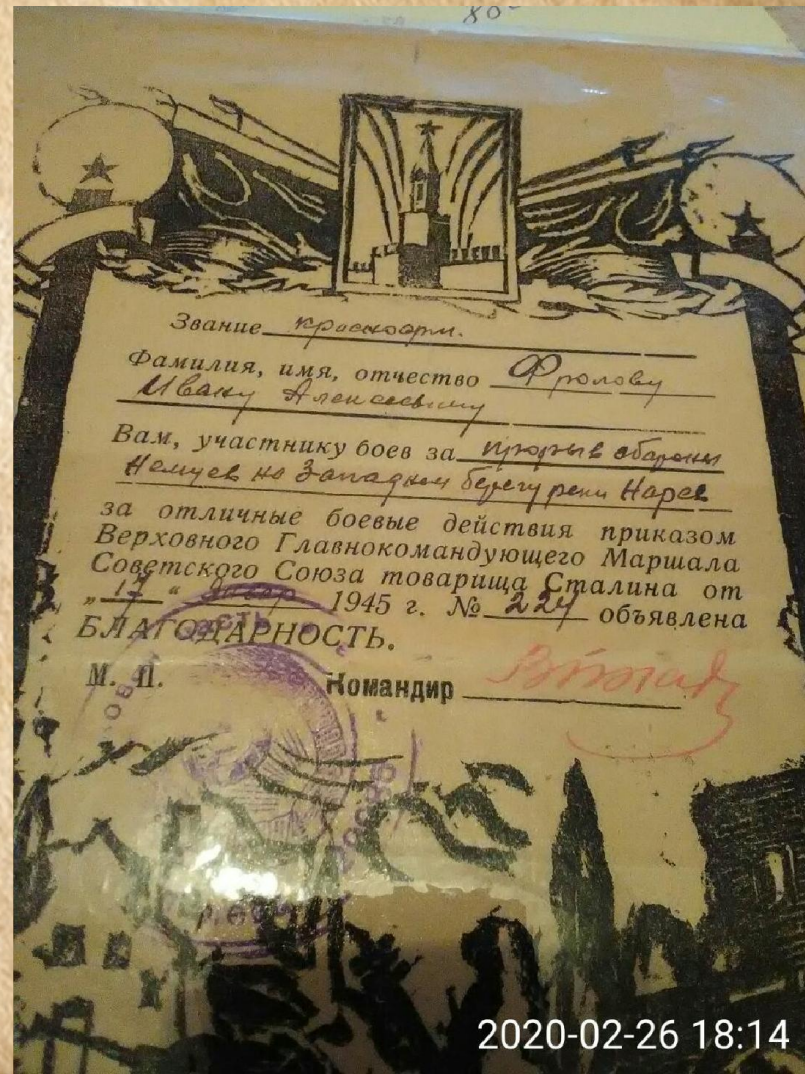 80
Звание красноарм.
Фамилия, имя, отчество Фролову
Ивану Алексеевичу
Вам, участнику боев за прорыв обороны
Немцев на Западном берегу реки Нарев
за отличные боевые действия приказом
Верховного Главнокомандующего Маршала
Советского Союза товарища Сталина от
„17“ Январ 1945 г. № 224 объявлена
БЛАГОДАРНОСТЬ.
М. П. Командир
2020-02-26 18:14